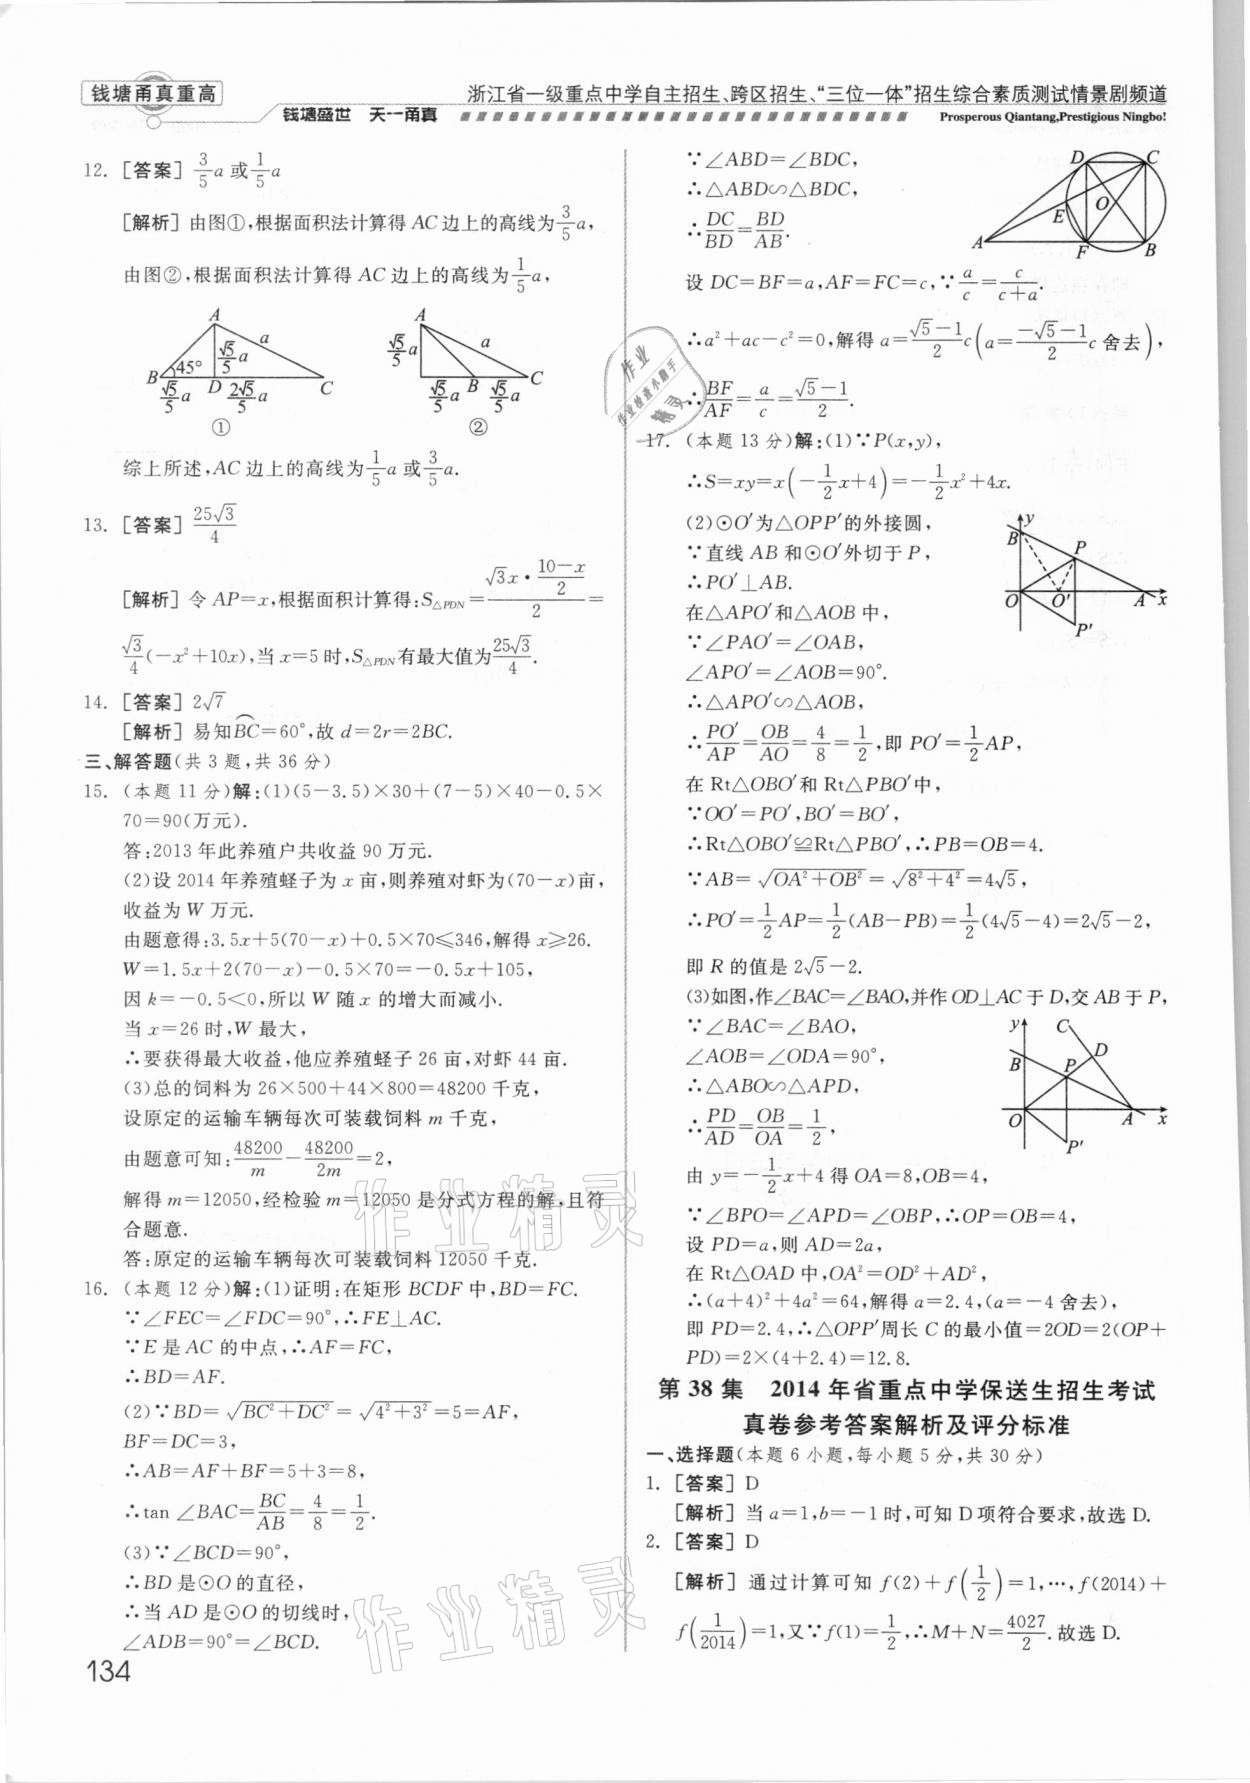 钱塘甬真重高
钱塘盛世 天一甬真
浙江省一级重点中学自主招生、跨区招生、“三位一体”招生综合素质测试情景剧频道
Prosperous Qiantang,Prestigious Ningbo!
12. [答案] 3/5 a 或 1/5 a
[解析] 由图①,根据面积法计算得 AC 边上的高线为 3/5 a,
由图②,根据面积法计算得 AC 边上的高线为 1/5 a,
A a √5/5 a 45° B D C √5/5 a 2√5/5 a ①
A a √5/5 a B C √5/5 a √5/5 a ②
综上所述,AC 边上的高线为 1/5 a 或 3/5 a.
13. [答案] 25√3/4
[解析] 令 AP=x,根据面积计算得:S△PDN=(√3x·(10-x)/2)/2=
√3/4(-x²+10x),当 x=5 时,S△PDN有最大值为 25√3/4.
14. [答案] 2√7
[解析] 易知B͡C=60°,故 d=2r=2BC.
三、解答题(共 3 题,共 36 分)
15. (本题 11 分)解:(1)(5-3.5)×30+(7-5)×40-0.5×
70=90(万元).
答:2013 年此养殖户共收益 90 万元.
(2)设 2014 年养殖蛏子为 x 亩,则养殖对虾为(70-x)亩,
收益为 W 万元.
由题意得:3.5x+5(70-x)+0.5×70≤346,解得 x≥26.
W=1.5x+2(70-x)-0.5×70=-0.5x+105,
因 k=-0.5<0,所以 W 随 x 的增大而减小.
当 x=26 时,W 最大,
∴要获得最大收益,他应养殖蛏子 26 亩,对虾 44 亩.
(3)总的饲料为 26×500+44×800=48200 千克,
设原定的运输车辆每次可装载饲料 m 千克,
由题意可知:48200/m-48200/2m=2,
解得 m=12050,经检验 m=12050 是分式方程的解,且符
合题意.
答:原定的运输车辆每次可装载饲料 12050 千克.
16. (本题 12 分)解:(1)证明:在矩形 BCDF 中,BD=FC.
∵∠FEC=∠FDC=90°,∴FE⊥AC.
∵E 是 AC 的中点,∴AF=FC,
∴BD=AF.
(2)∵BD=√(BC²+DC²)=√(4²+3²)=5=AF,
BF=DC=3,
∴AB=AF+BF=5+3=8,
∴tan ∠BAC=BC/AB=4/8=1/2.
(3)∵∠BCD=90°,
∴BD 是⊙O 的直径,
∴当 AD 是⊙O 的切线时,
∠ADB=90°=∠BCD.
134
∵∠ABD=∠BDC,
∴△ABD∽△BDC,
∴DC/BD=BD/AB.
D C O E A F B
设 DC=BF=a,AF=FC=c,∵a/c=c/(c+a).
∴a²+ac-c²=0,解得 a=(√5-1)/2 c(a=(-√5-1)/2 c 舍去),
∴BF/AF=a/c=(√5-1)/2.
17. (本题 13 分)解:(1)∵P(x,y),
∴S=xy=x(-1/2 x+4)=-1/2 x²+4x.
(2)⊙O′为△OPP′的外接圆,
∵直线 AB 和⊙O′外切于 P,
∴PO′⊥AB.
y B P O O′ A x P′
在△APO′和△AOB 中,
∵∠PAO′=∠OAB,
∠APO′=∠AOB=90°.
∴△APO′∽△AOB,
∴PO′/AP=OB/AO=4/8=1/2,即 PO′=1/2 AP,
在 Rt△OBO′和 Rt△PBO′中,
∵OO′=PO′,BO′=BO′,
∴Rt△OBO′≌Rt△PBO′,∴PB=OB=4.
∵AB=√(OA²+OB²)=√(8²+4²)=4√5,
∴PO′=1/2 AP=1/2(AB-PB)=1/2(4√5-4)=2√5-2,
即 R 的值是 2√5-2.
(3)如图,作∠BAC=∠BAO,并作 OD⊥AC 于 D,交 AB 于 P,
∵∠BAC=∠BAO,
∠AOB=∠ODA=90°,
∴△ABO∽△APD,
∴PD/AD=OB/OA=1/2,
y C D B P O A x P′
由 y=-1/2 x+4 得 OA=8,OB=4,
∵∠BPO=∠APD=∠OBP,∴OP=OB=4,
设 PD=a,则 AD=2a,
在 Rt△OAD 中,OA²=OD²+AD²,
∴(a+4)²+4a²=64,解得 a=2.4,(a=-4 舍去),
即 PD=2.4,∴△OPP′周长 C 的最小值=2OD=2(OP+
PD)=2×(4+2.4)=12.8.
第 38 集 2014 年省重点中学保送生招生考试
真卷参考答案解析及评分标准
一、选择题(本题 6 小题,每小题 5 分,共 30 分)
1. [答案] D
[解析] 当 a=1,b=-1 时,可知 D 项符合要求,故选 D.
2. [答案] D
[解析] 通过计算可知 f(2)+f(1/2)=1,…,f(2014)+
f(1/2014)=1,又∵f(1)=1/2,∴M+N=4027/2.故选 D.
作业精灵
作业精灵
作业
作业检查小助手
精灵